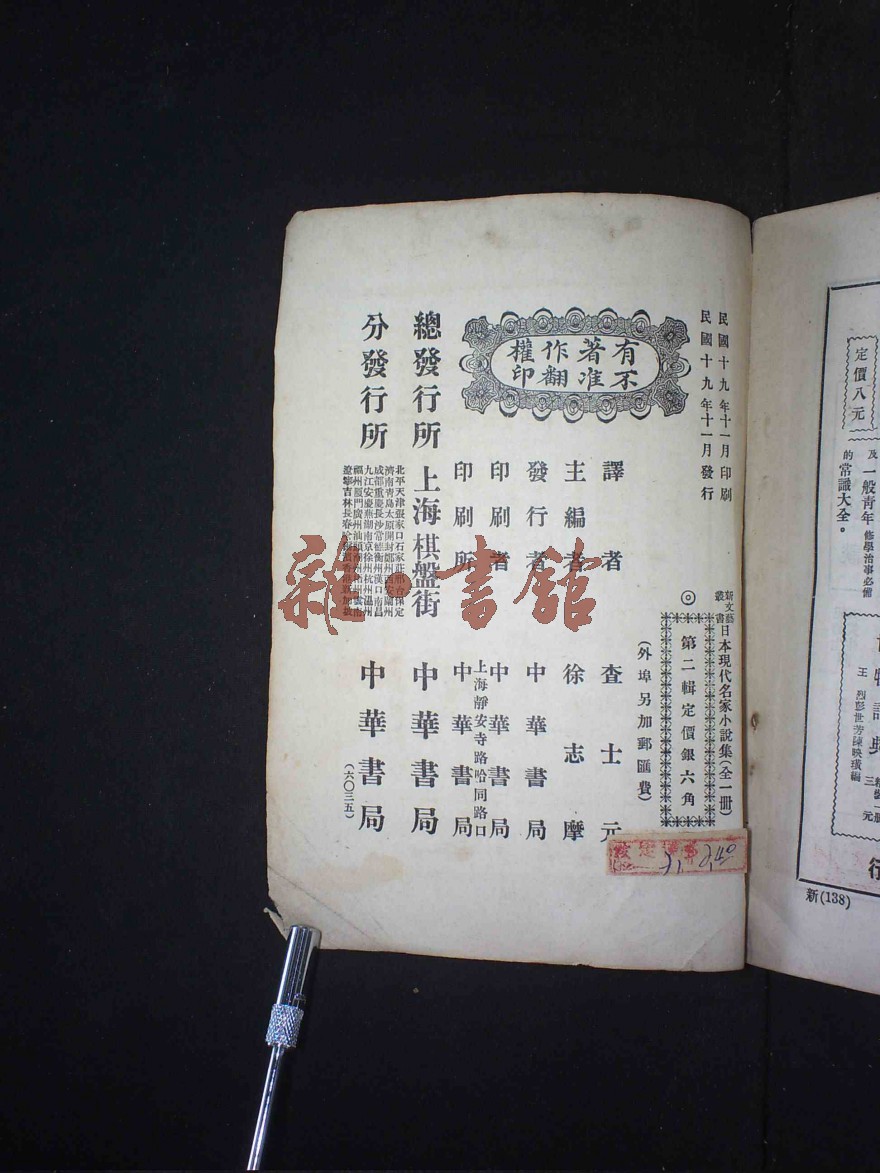 民國十九年十一月印刷
民國十九年十一月發行
新文藝叢書
日本現代名家小說集(全一冊)
◎第二輯定價銀六角
(外埠另加郵匯費)
有著作權
不准翻印
譯者 查士元
主編者 徐志摩
發行者 中華書局
印刷者 中華書局
上海靜安寺路哈同路口
印刷所 中華書局
總發行所 上海棋盤街 中華書局
分發行所
北平天津張家口石家莊邢台保定
濟南青島太原開封鄭州西安蘭州
成都重慶長沙常德衡州漢口南昌
九江安慶蕪湖南京徐州杭州溫州
福州廈門廣州汕頭
遼寧吉林長春
中華書局
(六〇三五)
雜書館
定價八元
及一般青年修學治事必備
的常識大全。
王烈彭世芳陳映璜編
三元
行
新(138)